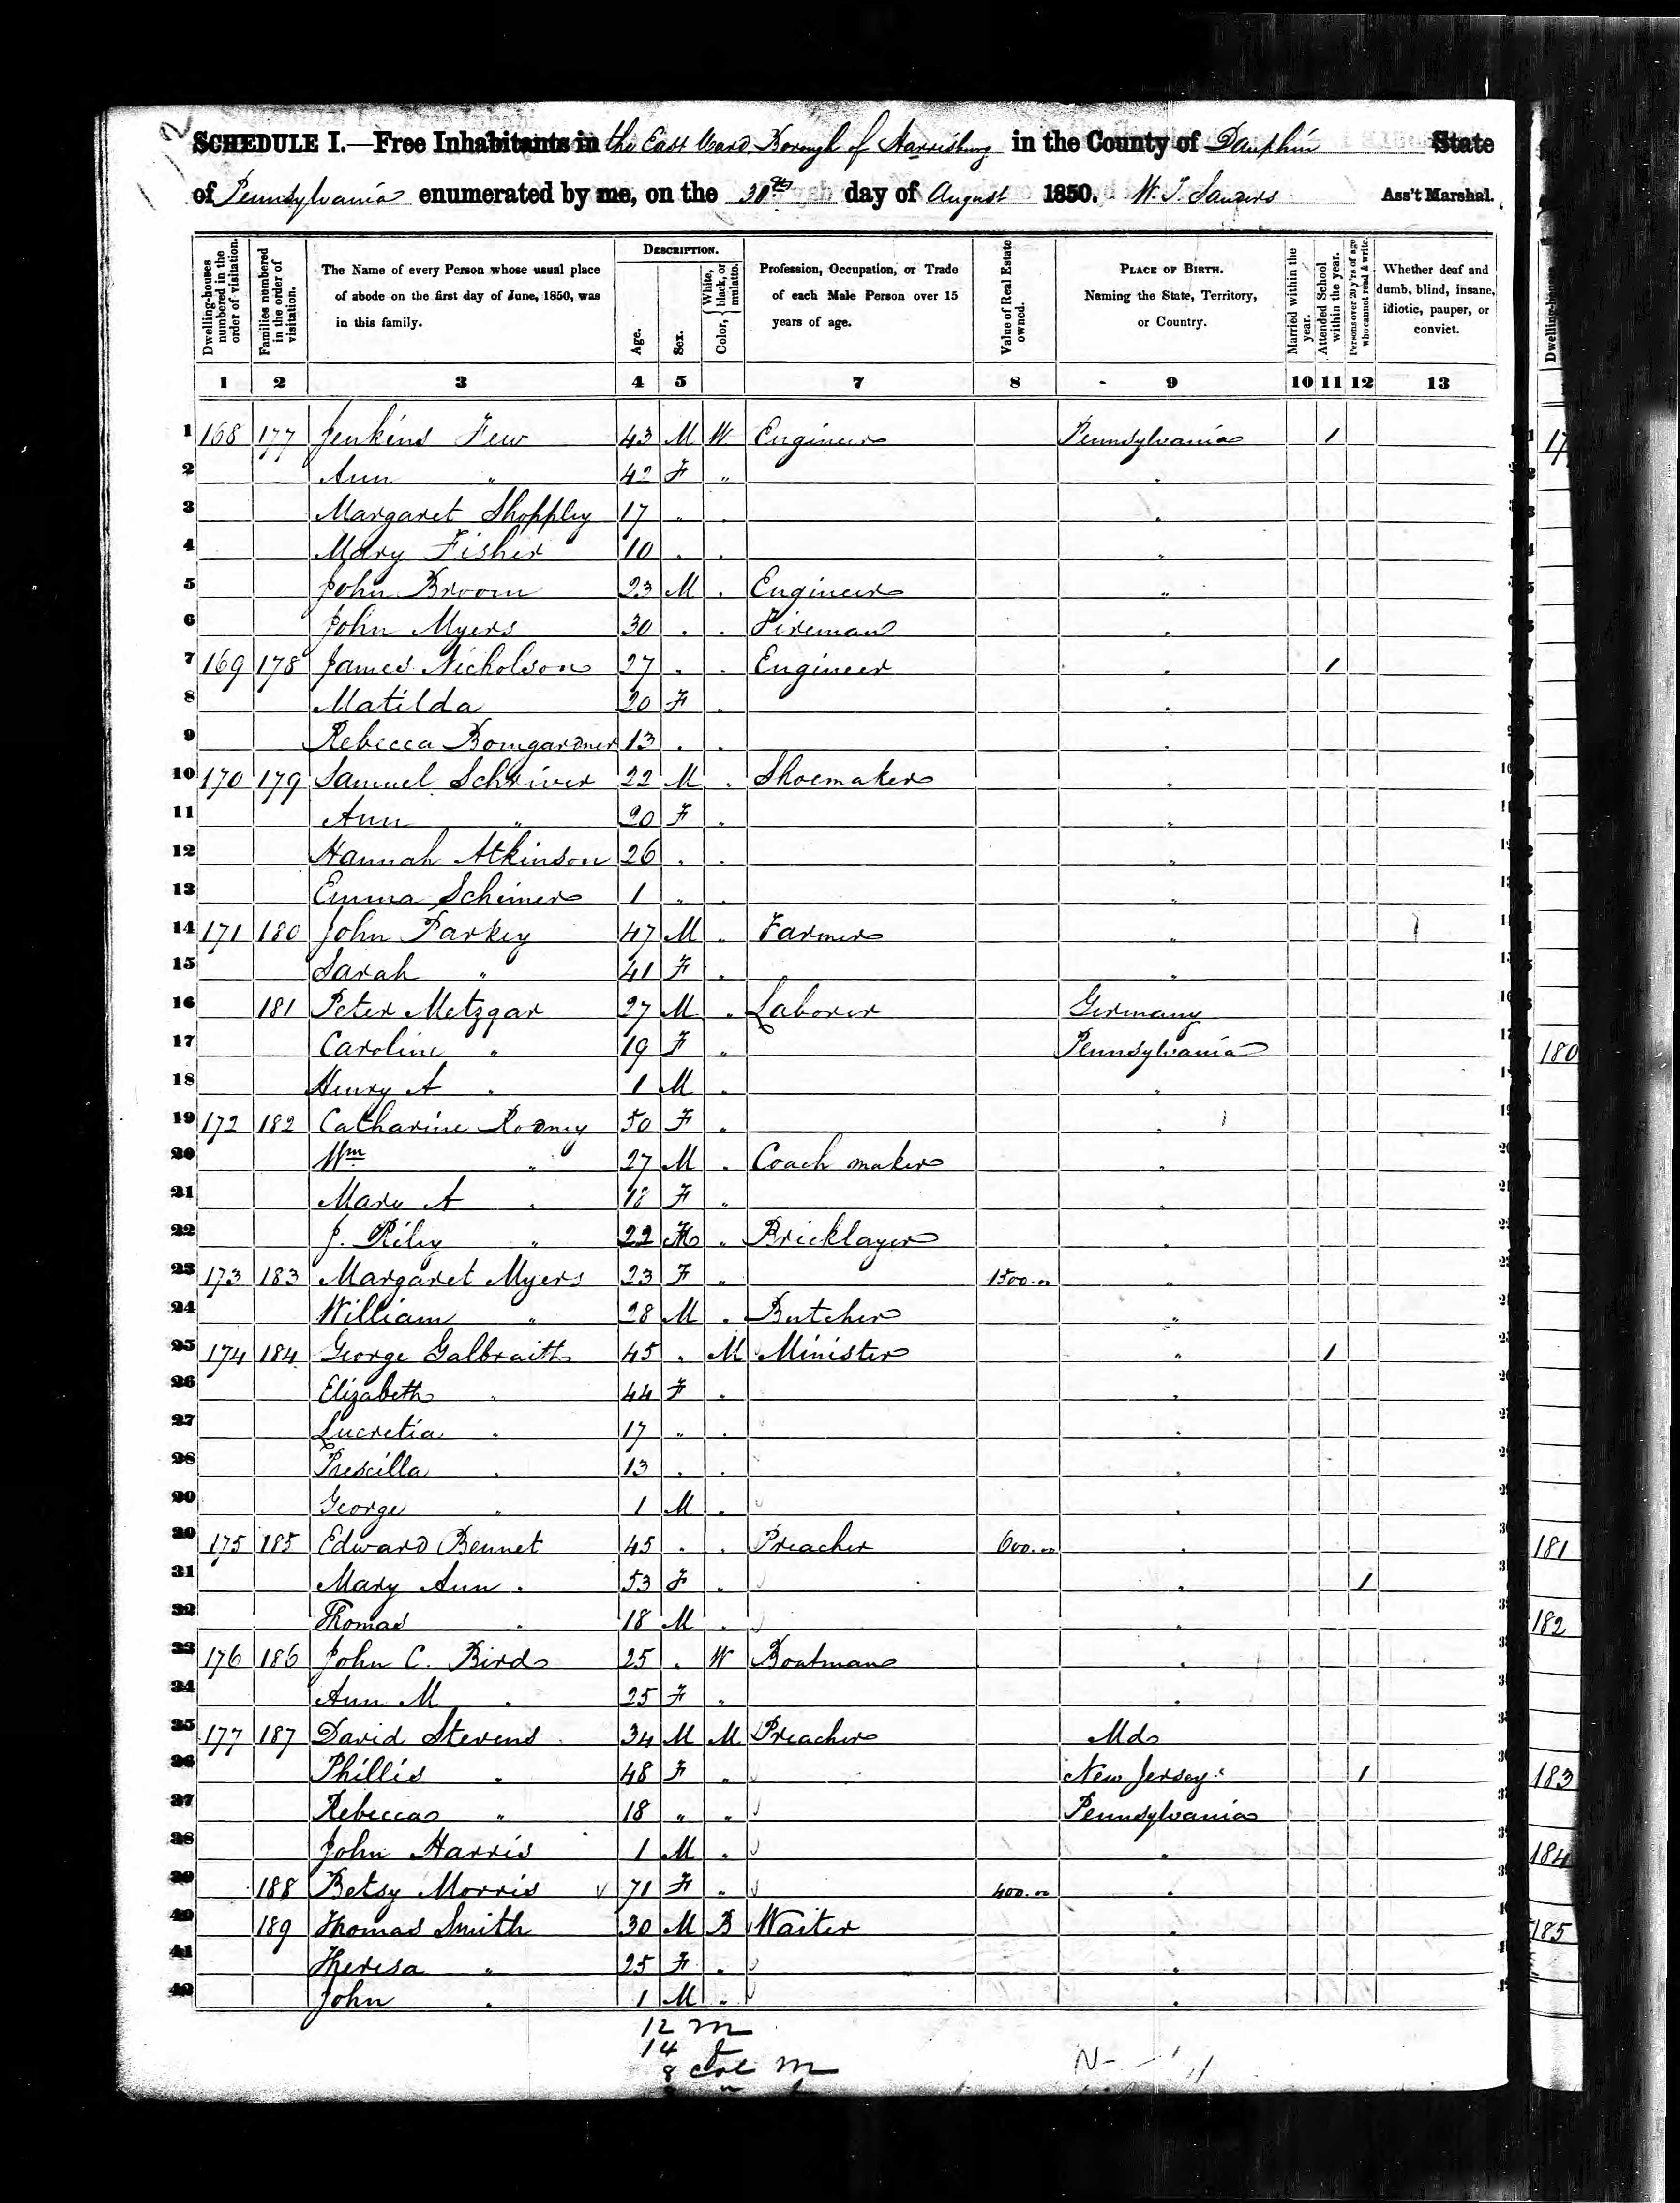 SCHEDULE I.—Free Inhabitants in the East Ward Borough of Harrisburg in the County of Dauphin State
of Pennsylvania enumerated by me, on the 30th day of August 1850. W. T. Sanders Ass't Marshal.
Dwelling-houses numbered in the order of visitation. Families numbered in the order of visitation. The Name of every Person whose usual place of abode on the first day of June, 1850, was in this family. DESCRIPTION. Age. Sex. Color, White, black, or mulatto. Profession, Occupation, or Trade of each Male Person over 15 years of age. Value of Real Estate owned. PLACE OF BIRTH. Naming the State, Territory, or Country. Married within the year. Attended School within the year. Persons over 20 y'rs of age who cannot read & write. Whether deaf and dumb, blind, insane, idiotic, pauper, or convict.
1 2 3 4 5 7 8 9 10 11 12 13
1 168 177 Jenkins Few 43 M W Engineer Pennsylvania 1
2 Ann " 42 F " "
3 Margaret Shoppley 17 " " "
4 Mary Fisher 10 " " "
5 John Broom 23 M " Engineer "
6 John Myers 30 " " Fireman "
7 169 178 James Nicholson 27 " " Engineer " 1
8 Matilda 20 F " "
9 Rebecca Bomgardner 13 " " "
10 170 179 Samuel Schriver 22 M " Shoemaker "
11 Ann " 20 F " "
12 Hannah Atkinson 26 " " "
13 Emma Schriner 1 " " "
14 171 180 John Parkey 47 M " Farmer "
15 Sarah " 41 F " "
16 181 Peter Metzgar 27 M " Laborer Germany
17 Caroline " 19 F " Pennsylvania
18 Henry A " 1 M " "
19 172 182 Catharine Rodney 50 F " "
20 Wm " 27 M " Coach maker "
21 Mary A " 18 F " "
22 J. Riley " 22 M " Bricklayer "
23 173 183 Margaret Myers 23 F " 1500.00 "
24 William " 28 M " Butcher "
25 174 184 George Galbraith 45 " M Minister " 1
26 Elizabeth " 44 F " "
27 Lucretia " 17 " " "
28 Prescilla " 13 " " "
29 George " 1 M " "
30 175 185 Edward Bennet 45 " " Preacher 600.00 "
31 Mary Ann " 53 F " " 1
32 Thomas " 18 M " "
33 176 186 John C. Bird 25 " W Boatman "
34 Ann M " 25 F " "
35 177 187 David Stevens 34 M M Preacher Md
36 Phillis " 48 F " New Jersey 1
37 Rebecca " 18 " " Pennsylvania
38 John Harris 1 M " "
39 188 Betsy Morris 71 F " 400.00 "
40 189 Thomas Smith 30 M B Waiter "
41 Theresa " 25 F " "
42 John " 1 M " "
12 m
14 f
8 col m
Dwelling-houses
180
181
182
183
184
185